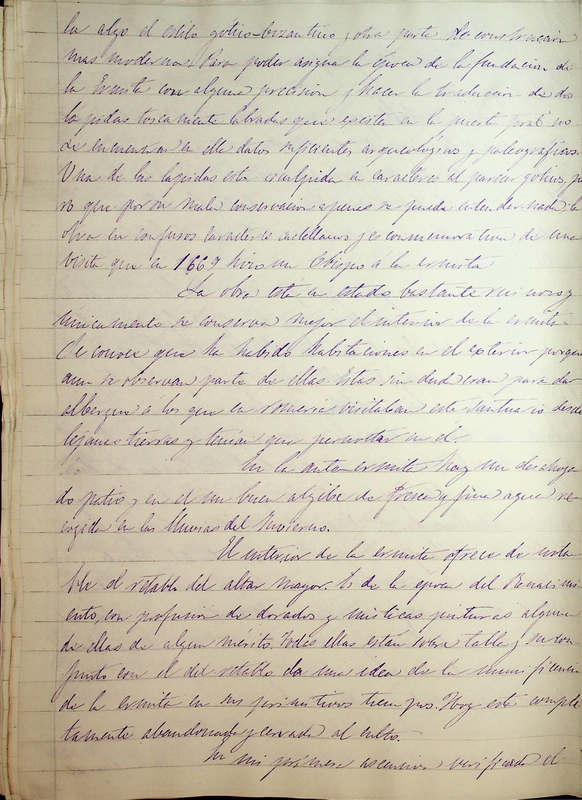 la algo el estilo gotico-bizantino y otra parte de construcción
mas moderna. Para poder asignar la época de la fundacion de
la Ermita con alguna precision y hacer la traduccion de dos
lapidas toscamente labradas que existen en la puerta pral no
se encuentran en ella datos suficientes arqueologicos y paleograficos.
Una de las lapidas está esculpida en caracteres al parecer goticos, pe
ro que por su mala conservacion apenas se puede entender nada; la
otra en confusos caracteres castellanos y es conmemorativa de una
visita que en 1669 hizo un Obispo á la ermita.
La obra está en estado bastante ruinoso y
unicamente se conserva mejor el interior de la ermita.
Se conoce que ha habido habitaciones en el exterior porque
aun se observan parte de ellas. Estas sin duda eran para dar
albergue á los que en romeria visitaban este santuario desde
lejanas tierras y tenian que pernoctar en el.
En la ante-ermita hay un desahoga
do patio y en el un buen algibe de fresca y fina agua re
cogida en las lluvias del Invierno.
El interior de la ermita ofrece de nota
ble el retablo del altar mayor. Es de la epoca del Renacimi
ento, con profusion de dorados y misticas pinturas alguna
de ellas de algun mérito. Todas ellas están sobre tabla y su con
junto con el del retablo da una idea de la munificencia
de la ermita en sus primitivos tiempos. Hoy está comple
tamente abandonada y cerrada al culto.
En mi primera ascension, verificada el